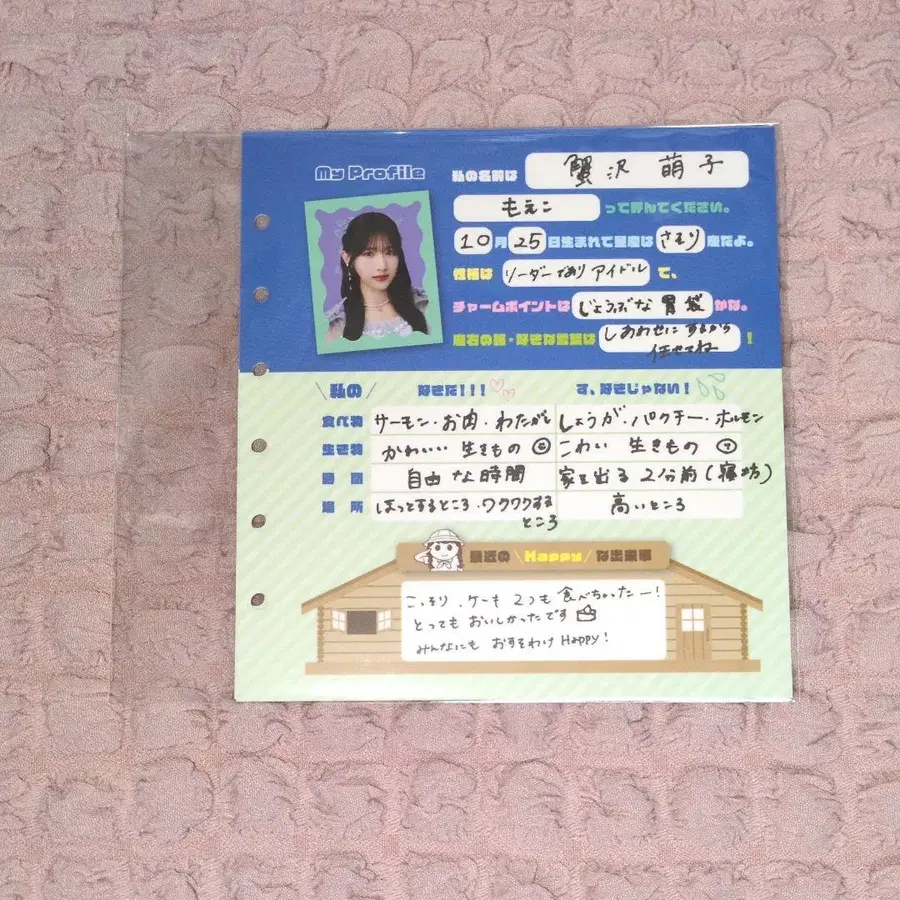 My Profile
私の名前は 蟹沢 萌子
もえこ って呼んでください。
10月25日生まれで星座はさそり座だよ。
性格は リーダーでありアイドル で、
チャームポイントは じょうぶな胃袋 かな。
座右の銘・好きな言葉は しあわせにするから 任せてね !
\私の/ 好きだ!!! す、好きじゃない!
食べ物 サーモン・お肉・わたがし しょうが・パクチー・ホルモン
生き物 かわいい 生きもの こわい 生きもの
時間 自由な時間 家を出る 2分前(寝坊)
場所 ほっとするところ・ワクワクするところ 高いところ
最近の\Happy/な出来事
こっそり、ケーキ 2つも 食べちゃったー!
とっても おいしかったです
みんなにも おすそわけ Happy!